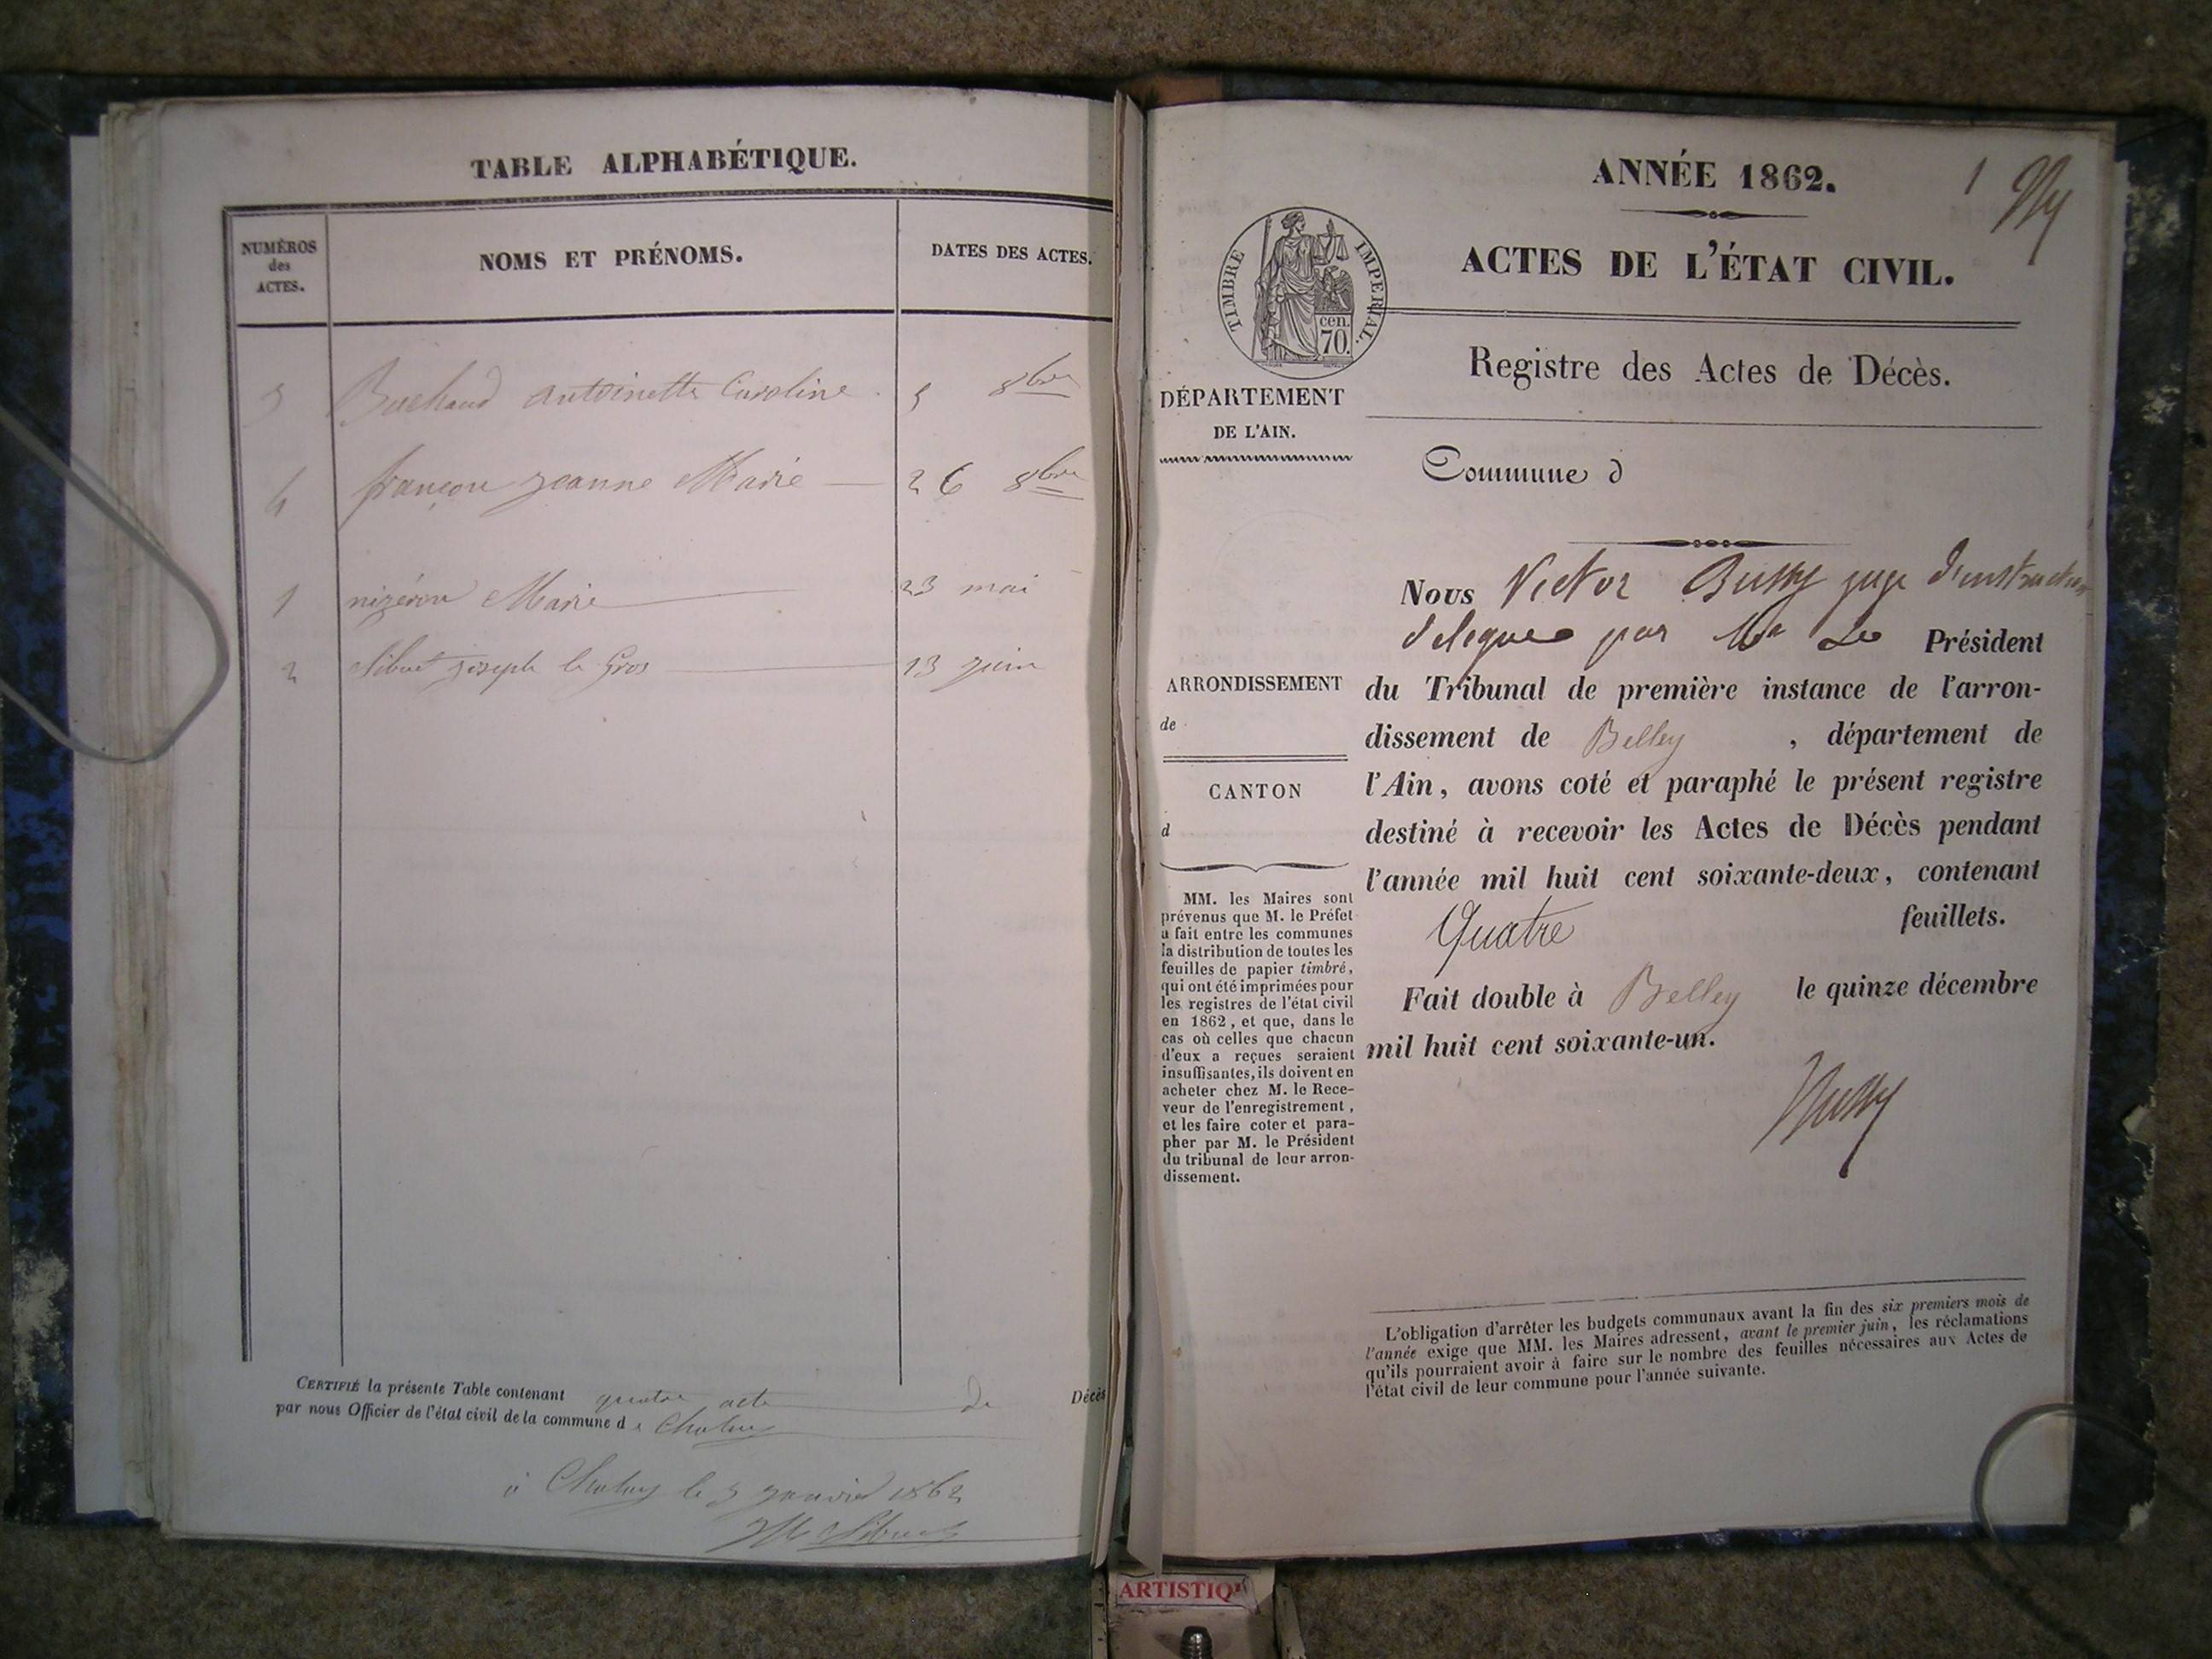 TABLE ALPHABÉTIQUE.
NUMÉROS
des
ACTES.
NOMS ET PRÉNOMS.
DATES DES ACTES.
3 Buchaud antoinette Caroline 5 8bre
4 françon jeanne Marie 26 8bre
1 nizeron Marie 23 mai
2 Sibuet joseph le Gros 13 juin
CERTIFIÉ la présente Table contenant quatre acte de Décès
par nous Officier de l'état civil de la commune de
le 3 janvier 1862
ANNÉE 1862.
1
ACTES DE L'ÉTAT CIVIL.
TIMBRE IMPÉRIAL.
cen.
70.
Registre des Actes de Décès.
DÉPARTEMENT
DE L'AIN.
Commune d
Nous Victor Bussy juge d'instruction
délégué par Mr Le Président
du Tribunal de première instance de l'arron-
dissement de Belley , département de
l'Ain, avons coté et paraphé le présent registre
destiné à recevoir les Actes de Décès pendant
l'année mil huit cent soixante-deux, contenant
Quatre feuillets.
Fait double à Belley le quinze décembre
mil huit cent soixante-un.
Bussy
ARRONDISSEMENT
de
CANTON
d
MM. les Maires sont
prévenus que M. le Préfet
a fait entre les communes
la distribution de toutes les
feuilles de papier timbré,
qui ont été imprimées pour
les registres de l'état civil
en 1862, et que, dans le
cas où celles que chacun
d'eux a reçues seraient
insuffisantes, ils doivent en
acheter chez M. le Rece-
veur de l'enregistrement,
et les faire coter et para-
pher par M. le Président
du tribunal de leur arron-
dissement.
L'obligation d'arrêter les budgets communaux avant la fin des six premiers mois de
l'année exige que MM. les Maires adressent, avant le premier juin, les réclamations
qu'ils pourraient avoir à faire sur le nombre des feuilles nécessaires aux Actes de
l'état civil de leur commune pour l'année suivante.
ARTISTIQ